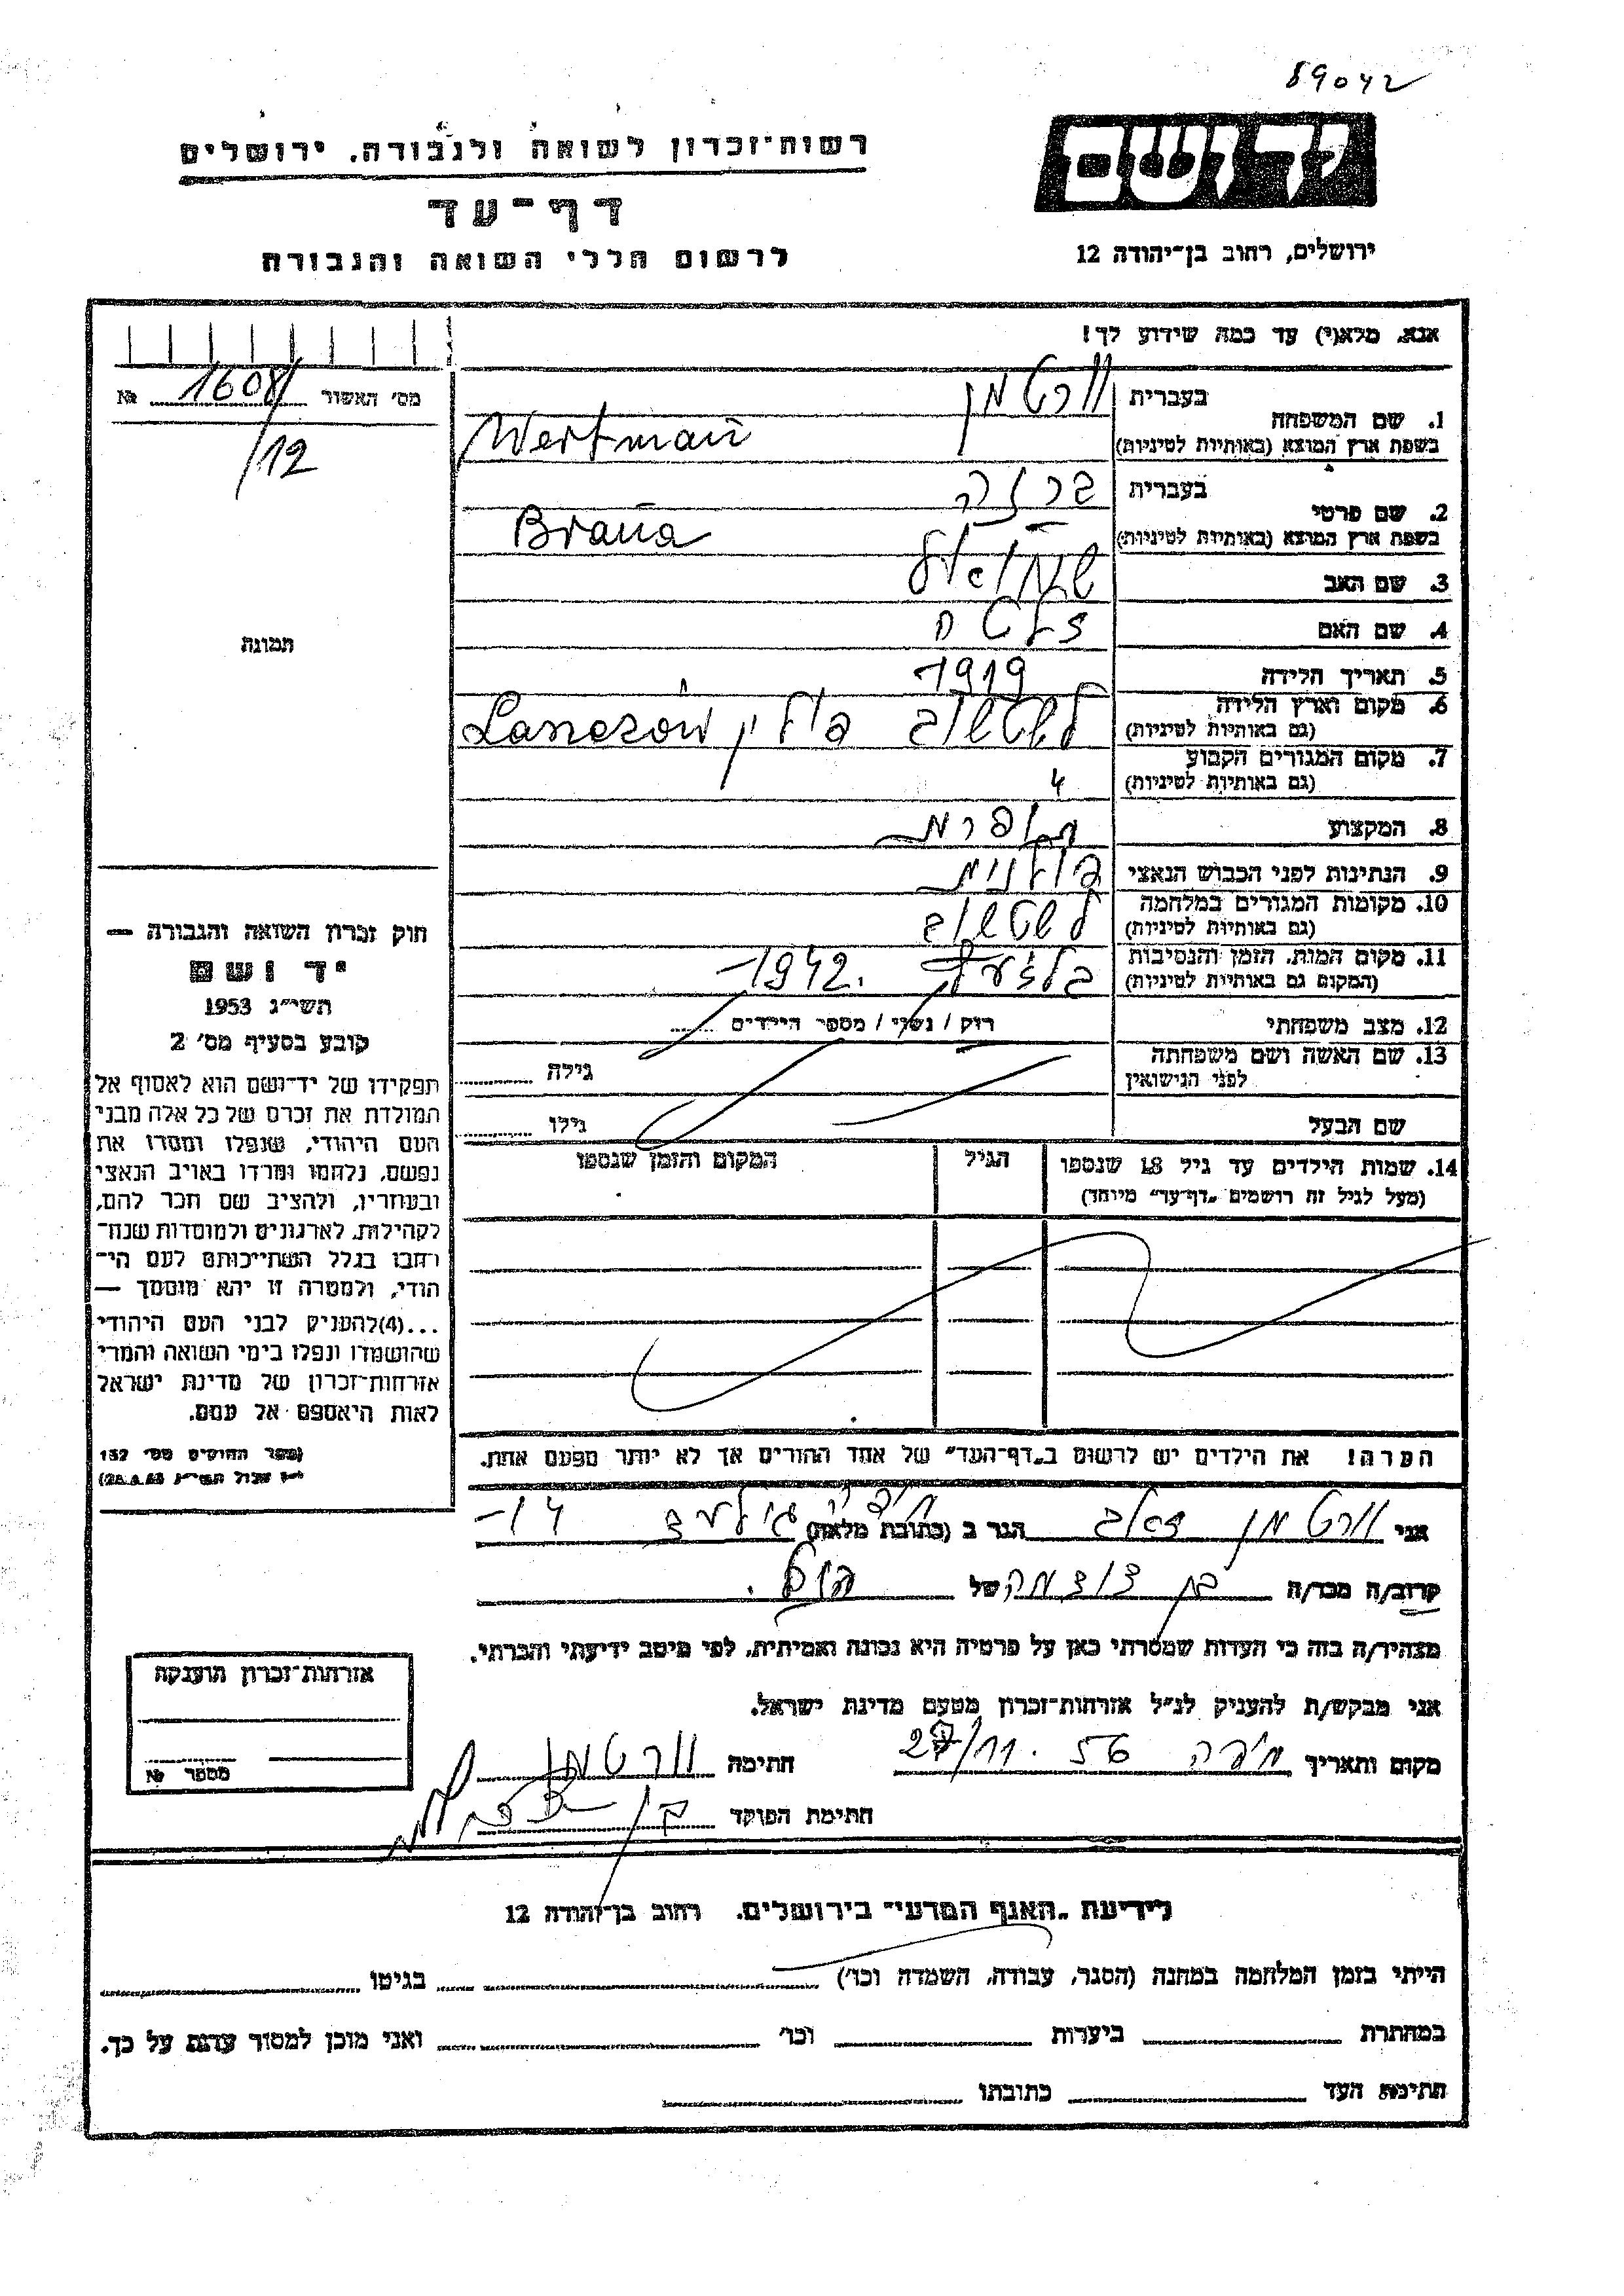 89042
רשות־זכרון לשואה ולגבורה. ירושלים
יד ושם
דף־עד
לרשום חללי השואה והגבורה
ירושלים, רחוב בן־יהודה 12
אנא, מלא(י) עד כמה שידוע לך!
מס׳ האשור 1608/ №
/12
תמונה
1. שם המשפחה בעברית ורטמן
בשפת ארץ המוצא (באותיות לטיניות) Wertman
2. שם פרטי בעברית
בשפת ארץ המוצא (באותיות לטיניות) Braña
3. שם האב שמואל
4. שם האם
5. תאריך הלידה 1919
6. מקום וארץ הלידה פולין
(גם באותיות לטיניות)
7. מקום המגורים הקבוע
(גם באותיות לטיניות) 〃
8. המקצוע תופרת
9. הנתינות לפני הכבוש הנאצי פולנית
10. מקומות המגורים במלחמה
(גם באותיות לטיניות)
11. מקום המות, הזמן והנסיבות 1942.
(המקום גם באותיות לטיניות)
12. מצב משפחתי רוק / נשוי / מספר הילדים
13. שם האשה ושם משפחתה
לפני הנישואין גילה
שם הבעל גילו
14. שמות הילדים עד גיל 18 שנספו הגיל המקום והזמן שנספו
(מעל לגיל זה רושמים „דף־עד״ מיוחד)
חוק זכרון השואה והגבורה —
יד ושם
תשי״ג 1953
קובע בסעיף מס׳ 2
תפקידו של יד־ושם הוא לאסוף אל
המולדת את זכרם של כל אלה מבני
העם היהודי, שנפלו ומסרו את
נפשם, נלחמו ומרדו באויב הנאצי
ובעוזריו, ולהציב שם וזכר להם,
לקהילות, לארגונים ולמוסדות שנח־
רבו בגלל השתייכותם לעם הי־
הודי, ולמטרה זו יהא מוסמך —
...(4)להעניק לבני העם היהודי
שהושמדו ונפלו בימי השואה והמרי
אזרחות־זכרון של מדינת ישראל
לאות היאספם אל עמם.
(ספר החוקים מס׳ 132
הערה! את הילדים יש לרשום ב„דף־העד״ של אחד ההורים אך לא יותר מפעם אחת.
אני ורטמן זאב הגר ב (כתובת מלאה) חיפה
קרוב/ה מכר/ה בן דודה של הנ״ל.
מצהיר/ה בזה כי העדות שמסרתי כאן על פרטיה היא נכונה ואמיתית, לפי מיטב ידיעתי והכרתי.
אני מבקש/ת להעניק לנ״ל אזרחות־זכרון מטעם מדינת ישראל.
מקום ותאריך חיפה 27/11. 56 חתימה ורטמן
חתימת הפוקד
אזרחות־זכרון הוענקה
מספר №
לידיעת „האגף המדעי״ בירושלים. רחוב בן־יהודה 12
הייתי בזמן המלחמה במחנה (הסגר, עבודה, השמדה וכו׳) בגיטו
במחתרת ביערות וכו׳ ואני מוכן למסור עדות על כך.
חתימת העד כתובתו